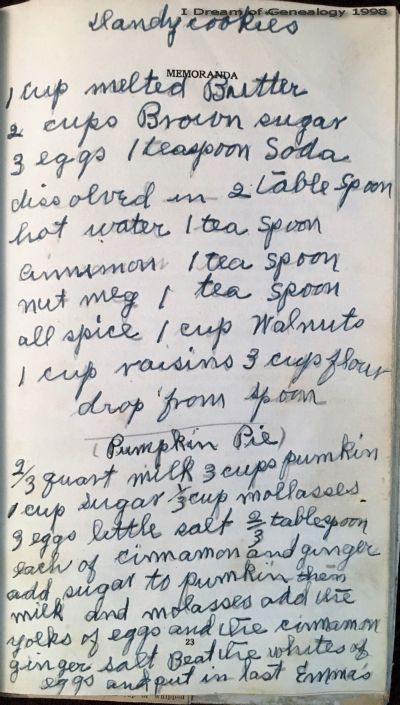 Handy cookies
I Dream of Genealogy 1998
MEMORANDA
1 cup melted Butter
2 cups Brown sugar
3 eggs 1 teaspoon Soda
dissolved in 2 table spoon
hot water 1 tea spoon
cinnamon 1 tea spoon
nut meg 1 tea spoon
all spice 1 cup Walnuts
1 cup raisins 3 cups flour
drop from spoon
(Pumpkin Pie)
2/3 quart milk 3 cups pumkin
1 cup sugar 1/3 cup mollasses
3 eggs little salt 2/3 tablespoon
each of cinnamon and ginger
add sugar to pumkin then
milk and molasses add the
yolks of eggs and the cinnamon
23
ginger salt Beat the whites of
eggs and put in last Emma's
cup of whipped